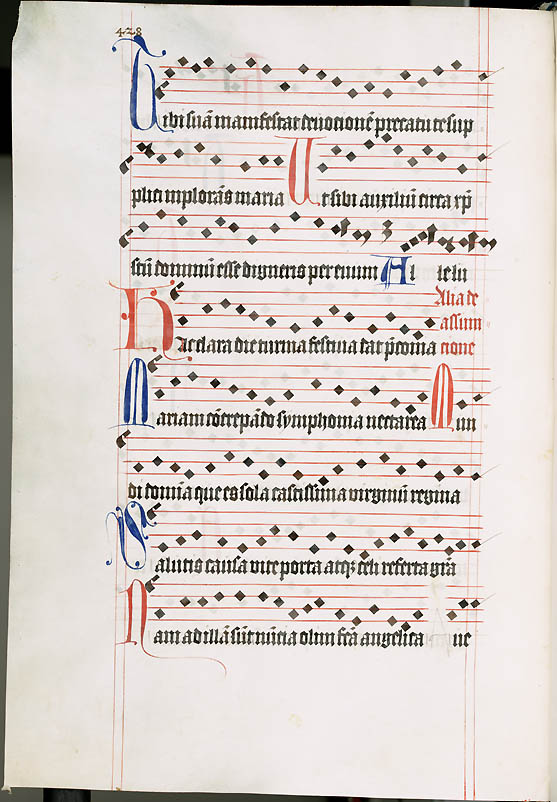 428
Tibi suā manifestat deuotionē precatu te sup
plici implorās maria Ut sibi auxiliū circa xp̄
stū dominū esse digneris per euum Al leluia
Alia de
assum
cione
Hac clara die turma festiua dat p̄conia
Mariam cōcrepādo symphonia nectarea Mun
di domīa que es sola castissima virginū regina
Salutis causa vite porta atq; celi referta grā
Nam ad illā sūt nūcia olim fcā angelica ue